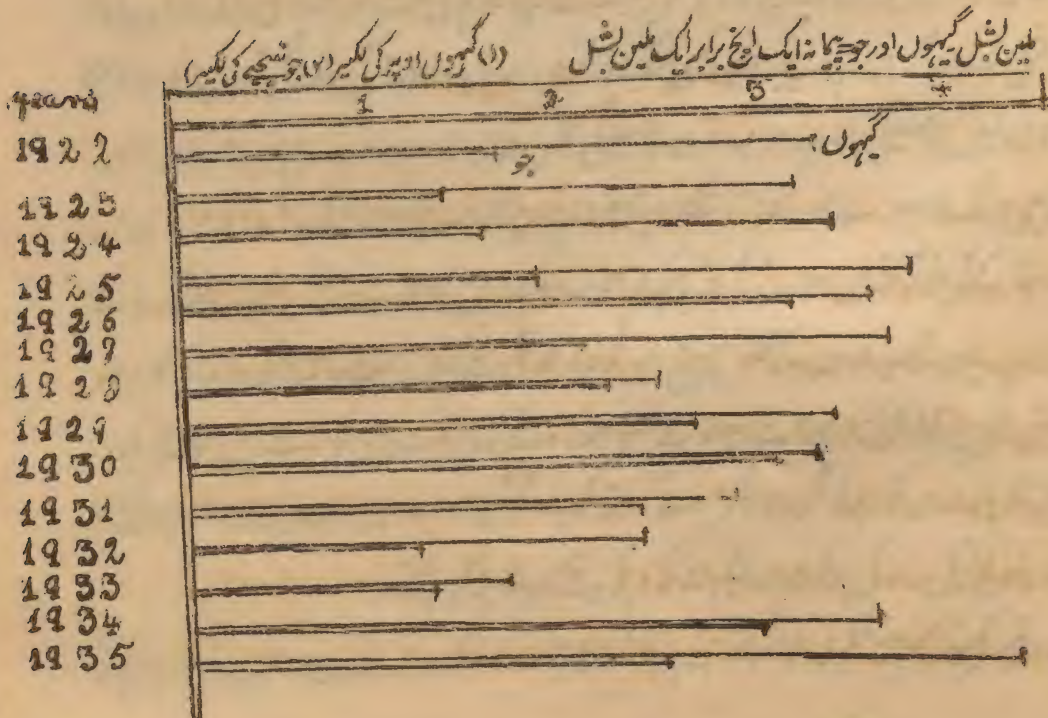 ملین بشل گیہوں اور جو پیمانہ ایک انچ برابر ایک ملین بشل (۱) گیہوں اوپر کی لکیر (۲) جو نیچے کی لکیر
years 1 2 3 4
1922 گیہوں
جو
1923
1924
1925
1926
1927
1928
1929
1930
1931
1932
1933
1934
1935